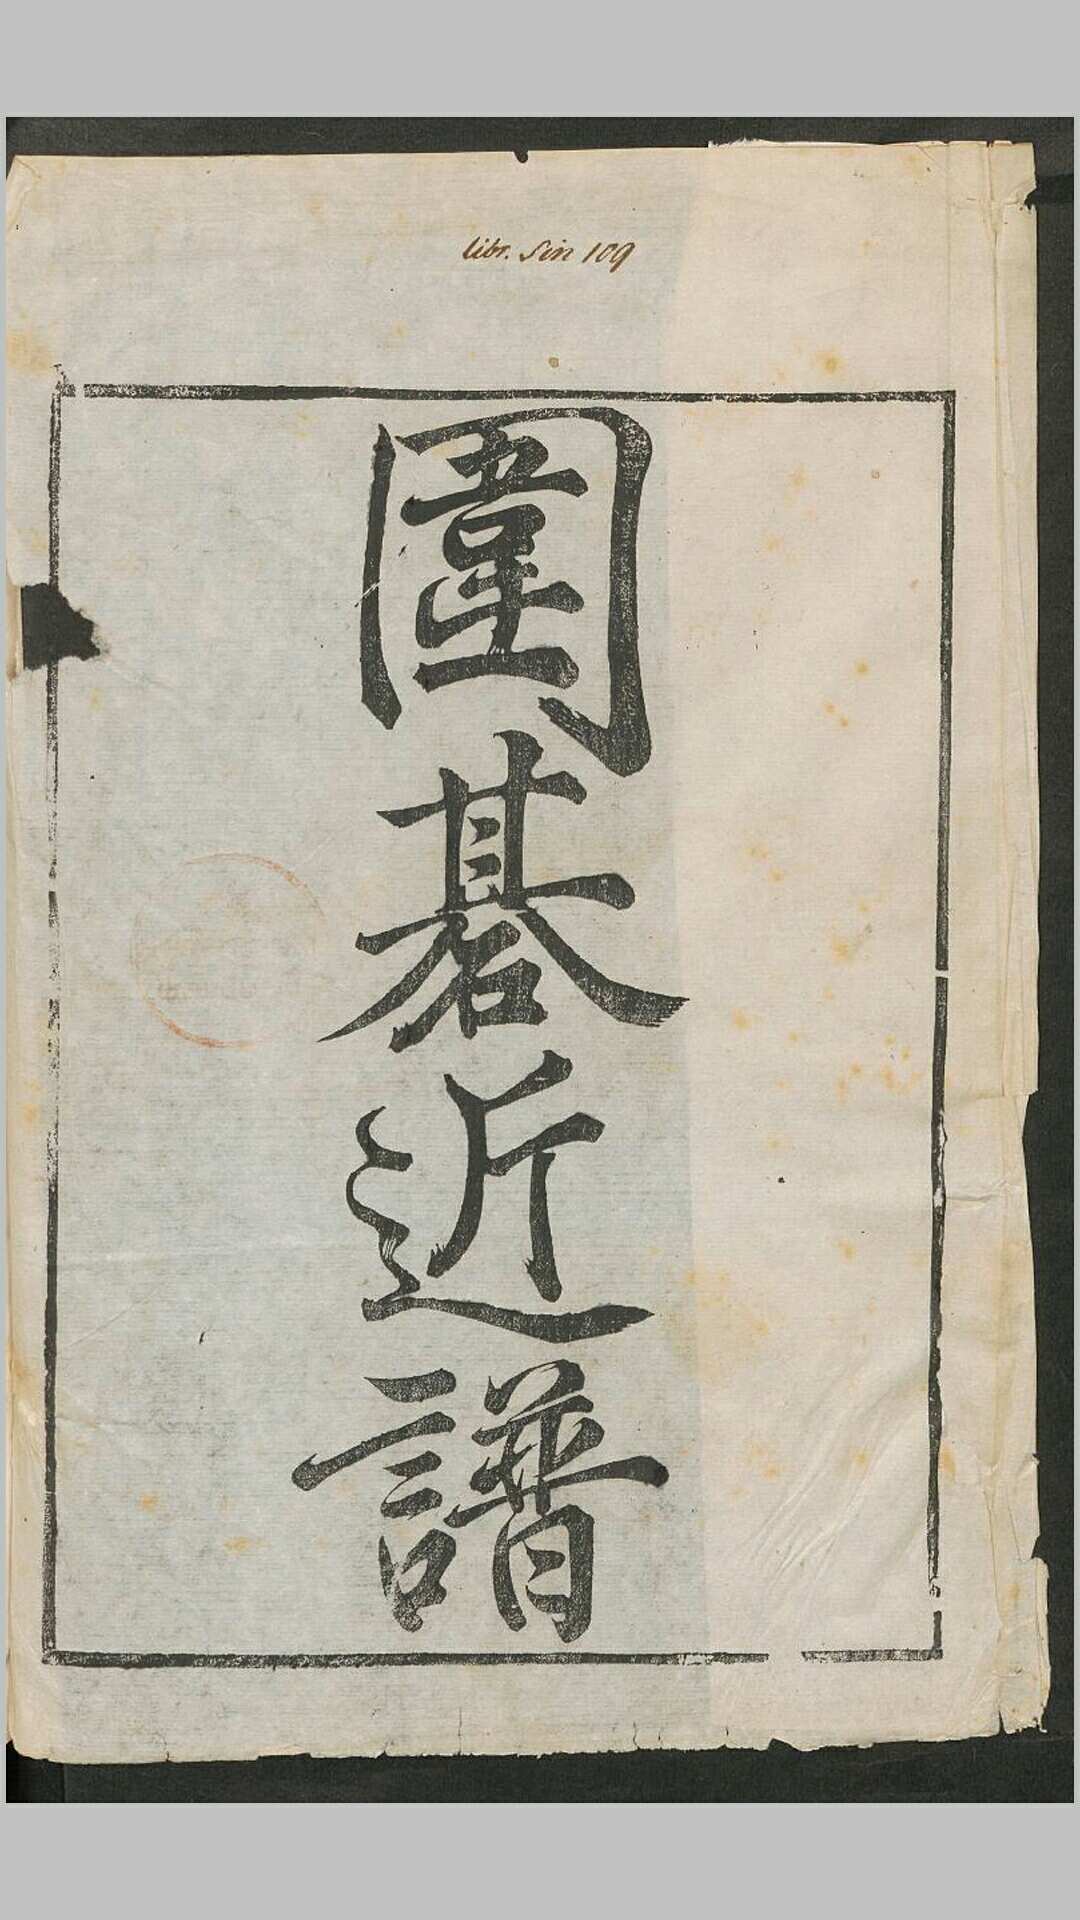 libr. Sin 109
圍碁近譜